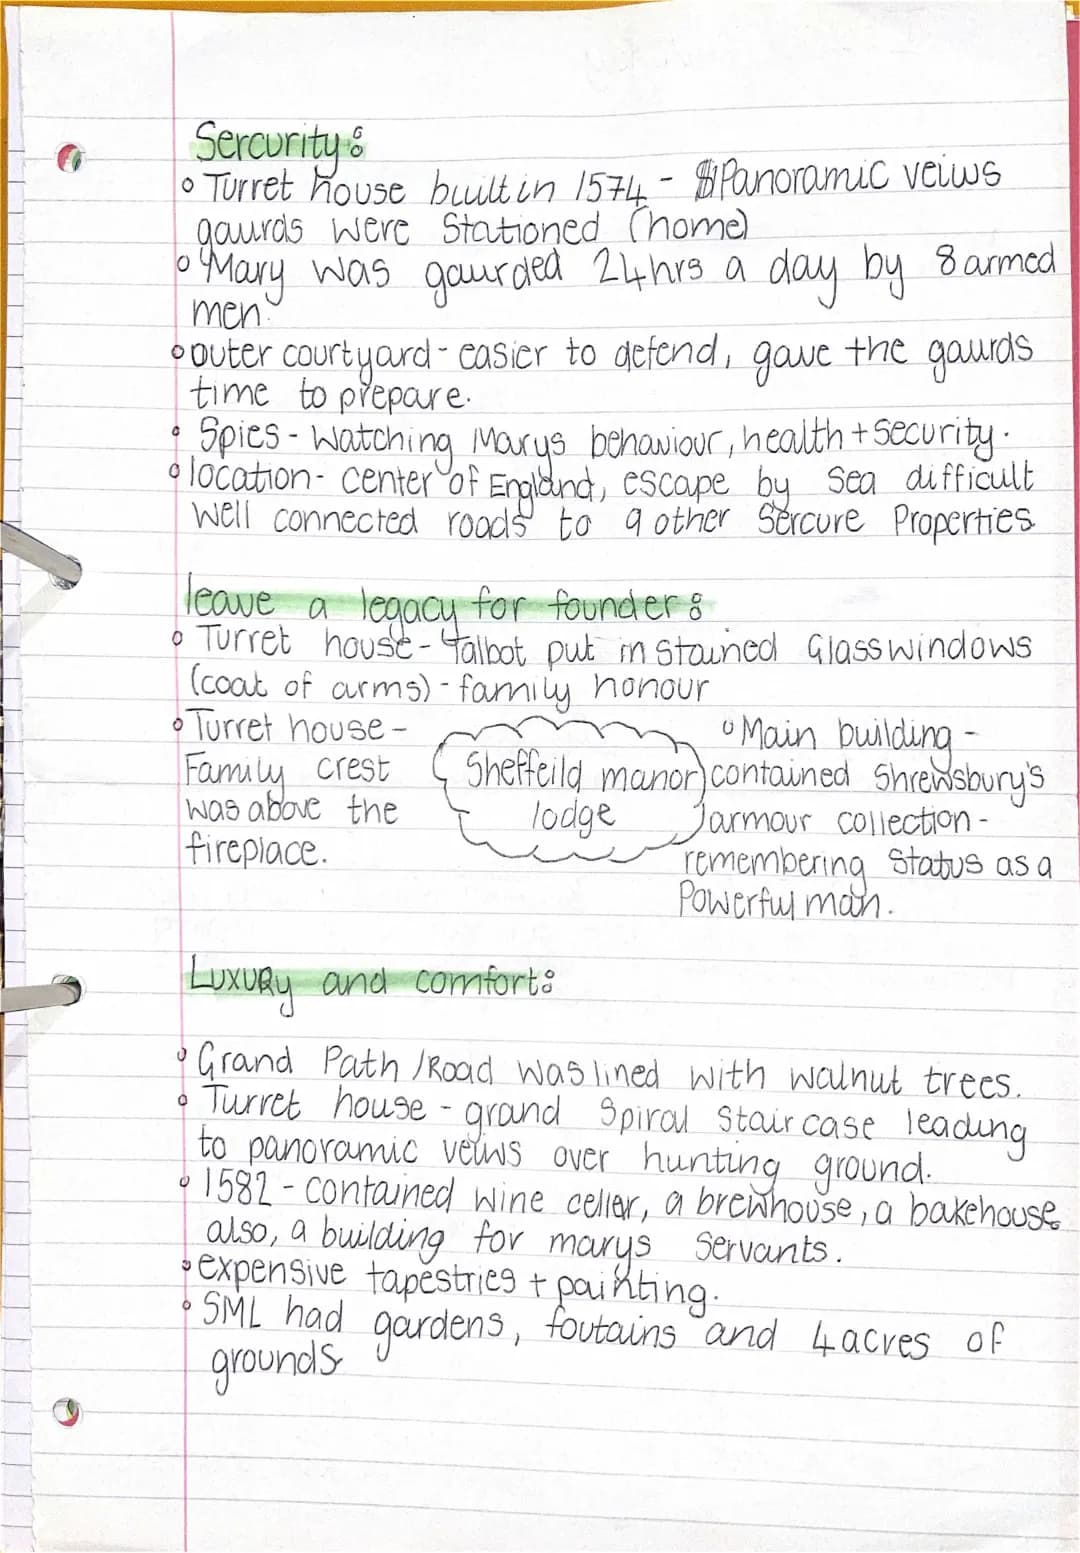 Sercurity:
• Turret house built in 1574 - Panoramic veiws
gaurds were Stationed (home)
• Mary was gaurded 24hrs a day by 8 armed
men.
• outer courtyard - easier to defend, gave the gaurds
time to prepare.
• Spies - Watching Marys behaviour, health + security.
• location - center of England, escape by sea difficult
well connected roads to 9 other Sercure Properties
leave a legacy for founder:
• Turret house - Talbot put in stained Glass windows
(coat of arms) - family honour
• Turret house -
Family crest
was above the
fireplace.
Sheffeild manor
lodge
• Main building -
contained Shrewsbury's
armour collection -
remembering Status as a
Powerful man.
Luxury and comfort:
• Grand Path / Road was lined with walnut trees.
• Turret house - grand Spiral Stair case leading
to panoramic veiws over hunting ground.
• 1582 - contained wine celler, a brewhouse, a bakehouse
also, a building for marys Servants.
• expensive tapestries + painting.
• SML had gardens, foutains and 4 acres of
grounds